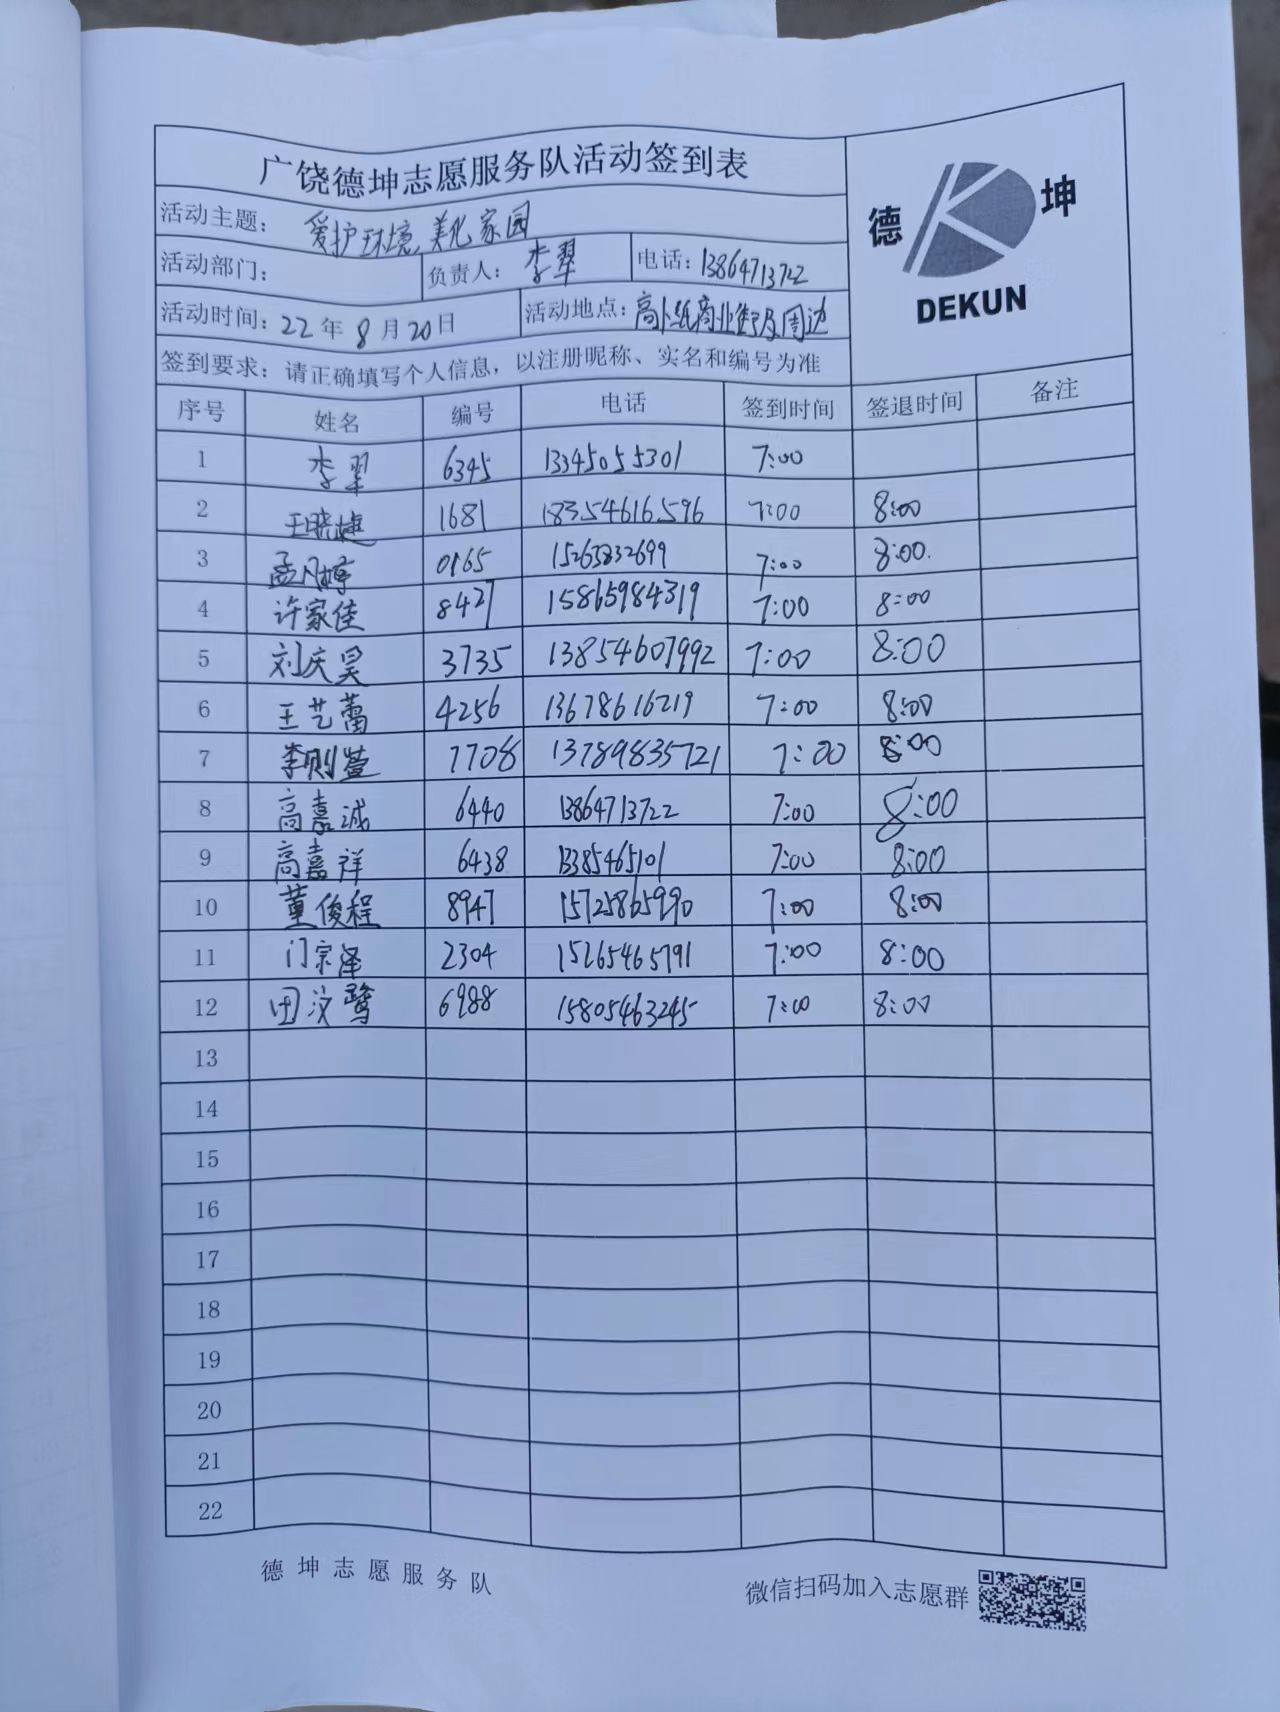 广饶德坤志愿服务队活动签到表
德 坤
DEKUN
活动主题: 爱护环境 美化家园
活动部门: 负责人: 李翠 电话: 13864713722
活动时间: 22年8月20日 活动地点: 商业街及周边
签到要求: 请正确填写个人信息, 以注册昵称、实名和编号为准
序号 姓名 编号 电话 签到时间 签退时间 备注
1 李翠 6345 13345055301 7:00
2 王晓梅 1681 18354616596 7:00 8:00
3 孟凡婷 0165 15263832699 7:00 8:00.
4 许家佳 8427 15865984319 7:00 8:00
5 刘庆昊 3735 13854607992 7:00 8:00
6 王艺蕾 4256 13678616219 7:00 8:00
7 李则萱 7708 13789835721 7:00 8:00
8 高嘉诚 6440 13864713722 7:00 8:00
9 高嘉祥 6438 13385465101 7:00 8:00
10 董俊程 8947 15725865990 7:00 8:00
11 门宗泽 2304 15265465791 7:00 8:00
12 田汶鹭 6988 15805463245 7:00 8:00
13
14
15
16
17
18
19
20
21
22
德坤志愿服务队 微信扫码加入志愿群